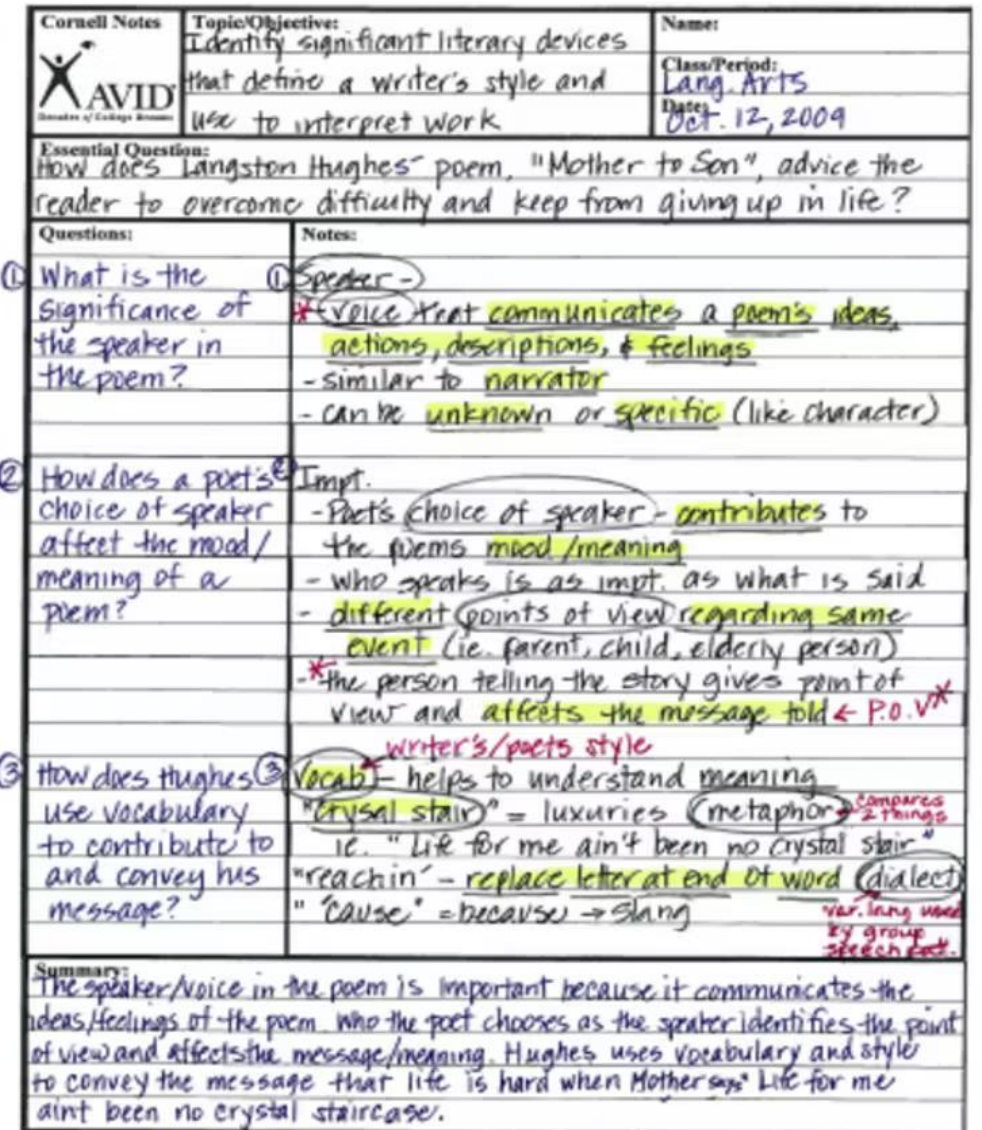 Cornell Notes
AVID
Decades of College Dreams
Topic/Objective:
Identify significant literary devices
that define a writer's style and
use to interpret work
Name:
Class/Period:
Lang. Arts
Date:
Oct. 12, 2009
Essential Question:
How does Langston Hughes' poem, "Mother to Son", advice the
reader to overcome difficulty and keep from giving up in life?
Questions:
① What is the
significance of
the speaker in
the poem?
② How does a poet's
choice of speaker
affect the mood/
meaning of a
poem?
③ How does Hughes
use vocabulary
to contribute to
and convey his
message?
Notes:
① Speaker -
* voice that communicates a poem's ideas,
actions, descriptions, & feelings
- similar to narrator
- can be unknown or specific (like character)
② Impt.
- Poet's choice of speaker - contributes to
the poems mood/meaning
- who speaks is as impt. as what is said
- different points of view regarding same
event (ie. parent, child, elderly person)
-* the person telling the story gives point of
view and affects the message told ← P.O.V*
writer's/poets style
③ Vocab - helps to understand meaning
"Crysal stair" = luxuries metaphor → compares
2 things
ie. "Life for me ain't been no crystal stair"
"reachin' - replace letter at end of word dialect
" 'cause" = because → slang
var. lang used
by group
speech
Summary:
The speaker/voice in the poem is important because it communicates the
ideas/feelings of the poem. Who the poet chooses as the speaker identifies the point
of view and affects the message/meaning. Hughes uses vocabulary and style
to convey the message that life is hard when Mother says" Life for me
aint been no crystal staircase.